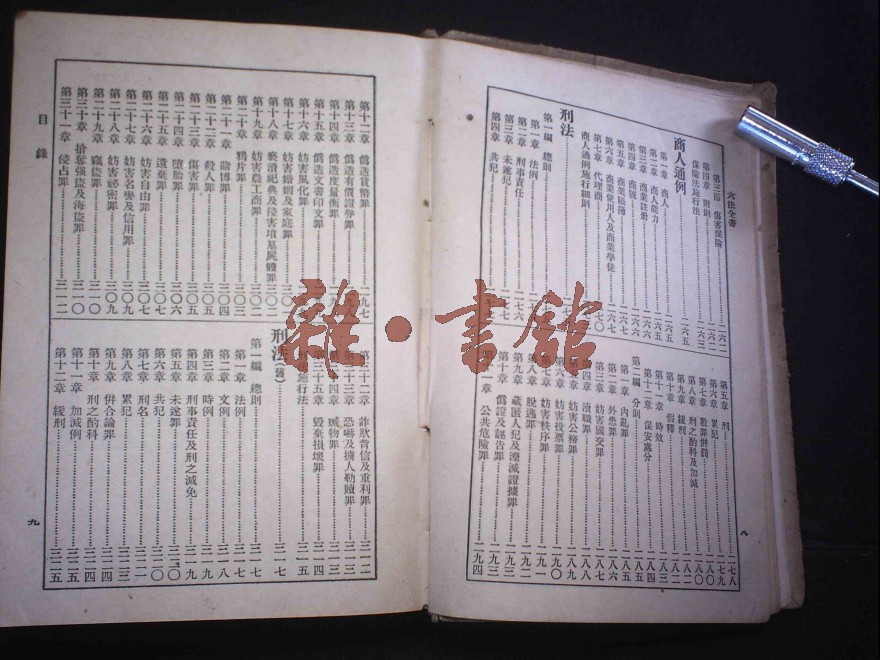 六法全書
第三節 傷害保險 二六二
第四章 附則
保險法施行法
商人通例 二六五
第一章 商人 二六五
第二章 商人能力 二六五
第三章 商業註冊
第四章 商號
第五章 商業賬簿 二六六
第六章 商業使用人及商業學徒
第七章 代理商
商人通例施行細則
刑法
第一編 總則
第一章 法例
第二章 刑事責任 二七六
第三章 未遂犯
第四章 共犯
第五章 刑 二七八
第六章 累犯 二八〇
第七章 數罪併罰
第八章 刑之酌科及加減
第九章 緩刑 二八二
第十章 假釋 二八二
第十一章 時效 二八三
第十二章 保安處分 二八四
第二編 分則 二八五
第一章 內亂罪 二八五
第二章 外患罪 二八六
第三章 妨害國交罪 二八七
瀆職罪 二八八
妨害公務罪 二八九
妨害投票罪 二九〇
妨害秩序罪 二九一
脫逃罪 二九二
藏匿人犯及湮滅證據罪 二九三
偽證及誣告罪 二九三
公共危險罪 二九四
八
第十二章 偽造貨幣罪 二九七
第十三章 偽造有價證券罪
第十四章 偽造度量衡罪
第十五章 偽造文書印文罪
第十六章 妨害風化罪
第十七章 妨害婚姻及家庭罪
第十八章 褻瀆祀典及侵害墳墓屍體罪 三〇二
第十九章 妨害農工商罪 三〇二
第二十章 鴉片罪 三〇三
第二十一章 賭博罪 三〇四
第二十二章 殺人罪 三〇五
第二十三章 傷害罪 三〇五
第二十四章 墮胎罪 三〇六
第二十五章 遺棄罪 三〇七
第二十六章 妨害自由罪 三〇七
第二十七章 妨害名譽及信用罪 三〇八
第二十八章 妨害祕密罪 三〇九
第二十九章 竊盜罪 三一〇
第三十章 搶奪强盜及海盜罪 三一〇
第三十一章 侵占罪 三一二
第三十二章 詐欺背信及重利罪 三一二
恐嚇及擄人勒贖罪 三一三
贓物罪 三一三
第三十五章 毀棄損壞罪 三一四
施行法 三一五
刑法(舊) 三一七
第一編 總則 三一七
第一章 法例 三一七
第二章 文例 三一八
第三章 時例 三一九
第四章 刑事責任及刑之減免 三一九
第五章 未遂罪 三二〇
第六章 共犯 三二〇
第七章 刑名 三二一
第八章 累犯 三二三
第九章 併合論罪
第十章 刑之酌科 三二四
第十一章 加減例 三二五
第十二章 緩刑 三二五
目錄
九
雜·書館